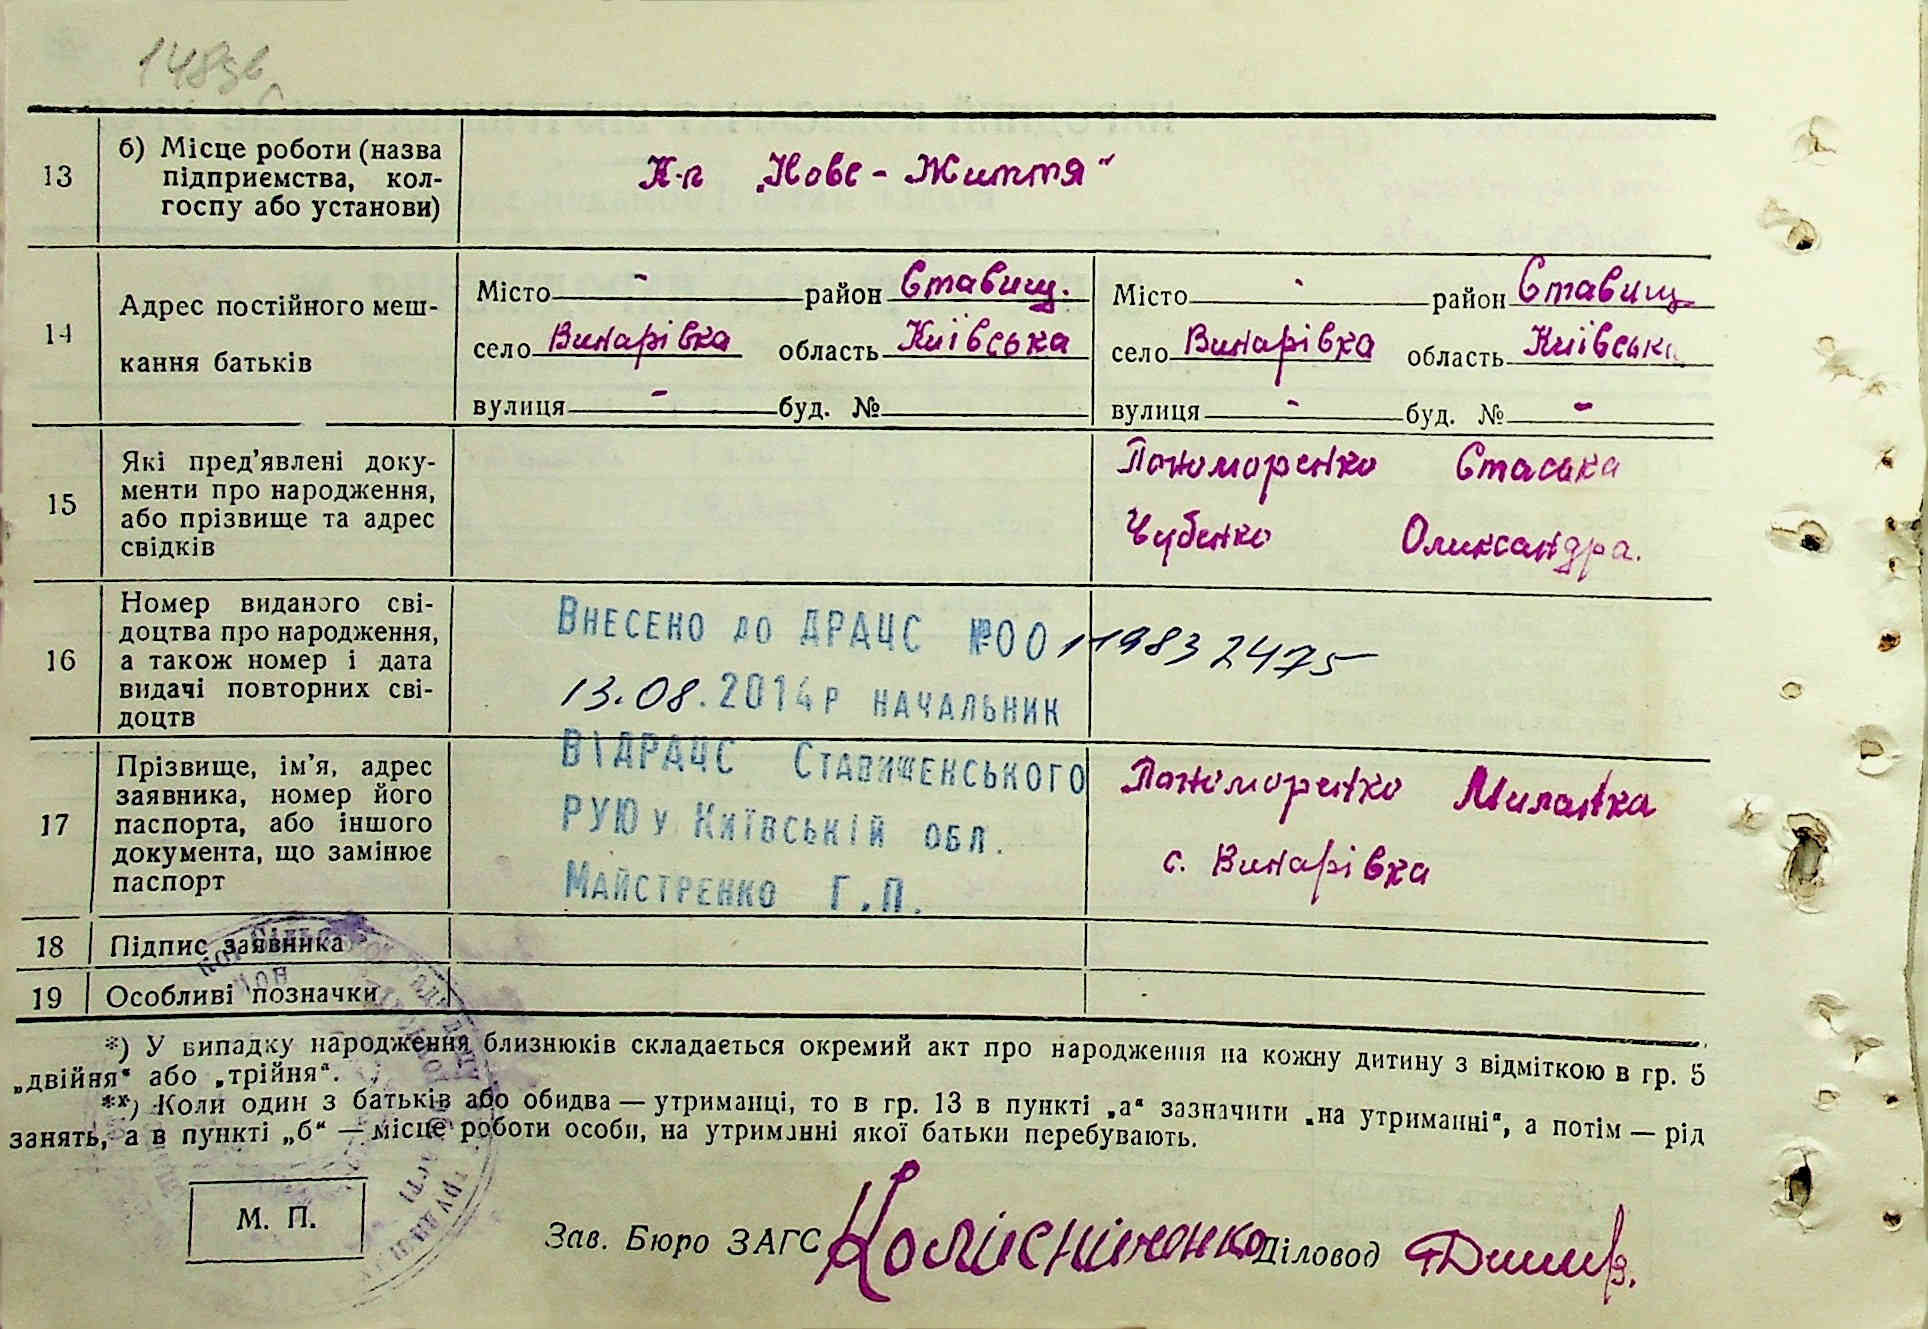 148зв
13 б) Місце роботи (назва
підприємства, кол-
госпу або установи)
К-п „Нове - Життя"
14 Адрес постійного меш-
кання батьків
Місто - район Ставищ.
село Винарівка область Київська
вулиця - буд. №
Місто - район Ставищ
село Винарівка область Київська
вулиця - буд. № -
15 Які пред'явлені доку-
менти про народження,
або прізвище та адрес
свідків
Пономоренко Стаська
Чубенко Олександра.
16 Номер виданого сві-
доцтва про народження,
а також номер і дата
видачі повторних сві-
доцтв
Внесено до ДРАЦС №00119832475
13.08.2014р начальник
ВІДРАЦС Ставищенського
РУЮ у Київській обл.
Майстренко Г.П.
17 Прізвище, ім'я, адрес
заявника, номер його
паспорта, або іншого
документа, що замінює
паспорт
Пономоренко Миланка
с. Винарівка
18 Підпис заявника
19 Особливі позначки
*) У випадку народження близнюків складається окремий акт про народження на кожну дитину з відміткою в гр. 5
„двійня" або „трійня".
**) Коли один з батьків або обидва — утриманці, то в гр. 13 в пункті „а" зазначити „на утриманні", а потім — рід
занять, а в пункті „б" — місце роботи особи, на утриманні якої батьки перебувають.
М. П.
Зав. Бюро ЗАГС Колісніченко Діловод